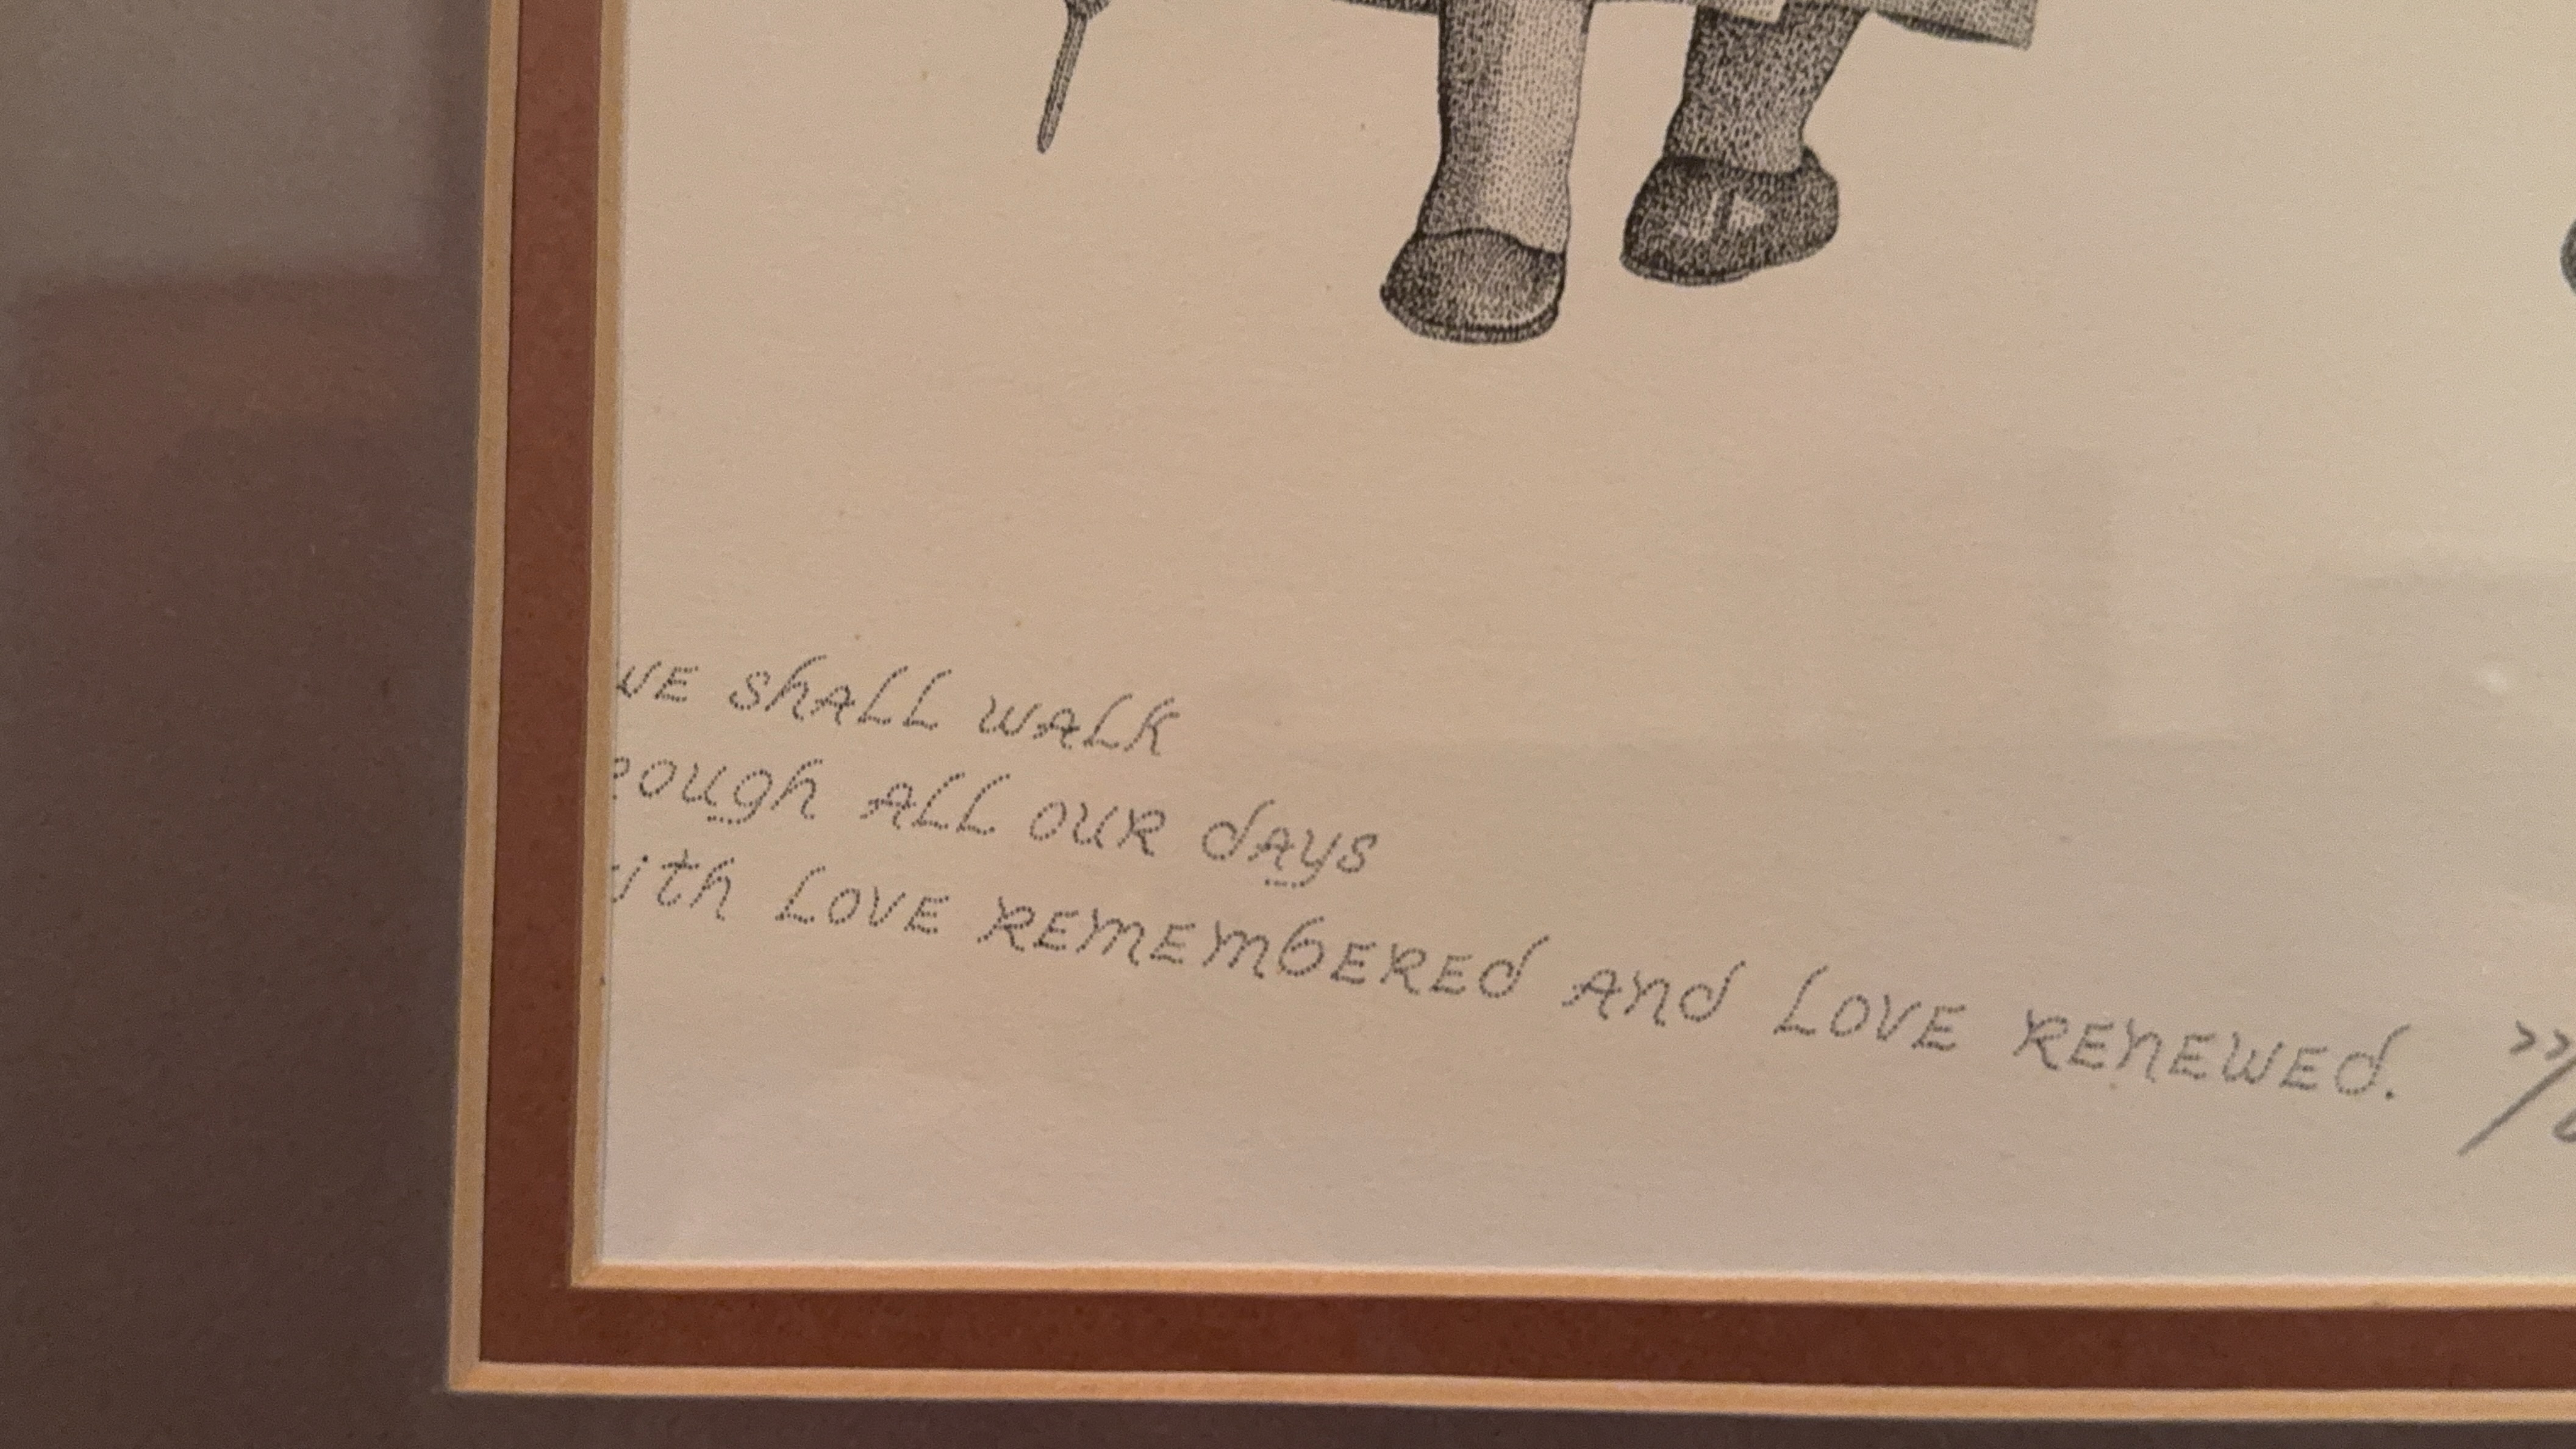 WE shALL WALK
ROUGH ALL OUR dAYS
ith LOVE REMEMBERED And LOVE RENEWED.